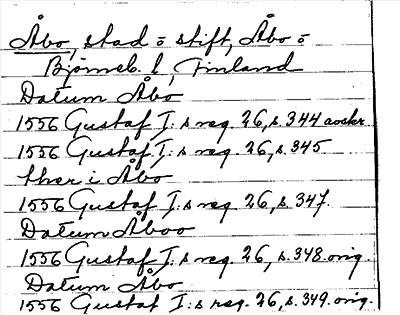 Åbo, stad = stift, Åbo =
Björneb. l, Finland
Datum Åbo
1556 Gustaf I:s reg. 26, s. 344 avskr.
1556 Gustaf I:s reg. 26, s. 345.
ther i Åbo
1556 Gustaf I:s reg. 26, s. 347.
Datum Åboo
1556 Gustaf I:s reg. 26, s. 348. orig.
Datum Åbo
1556 Gustaf I:s reg. 26, s. 349. orig.